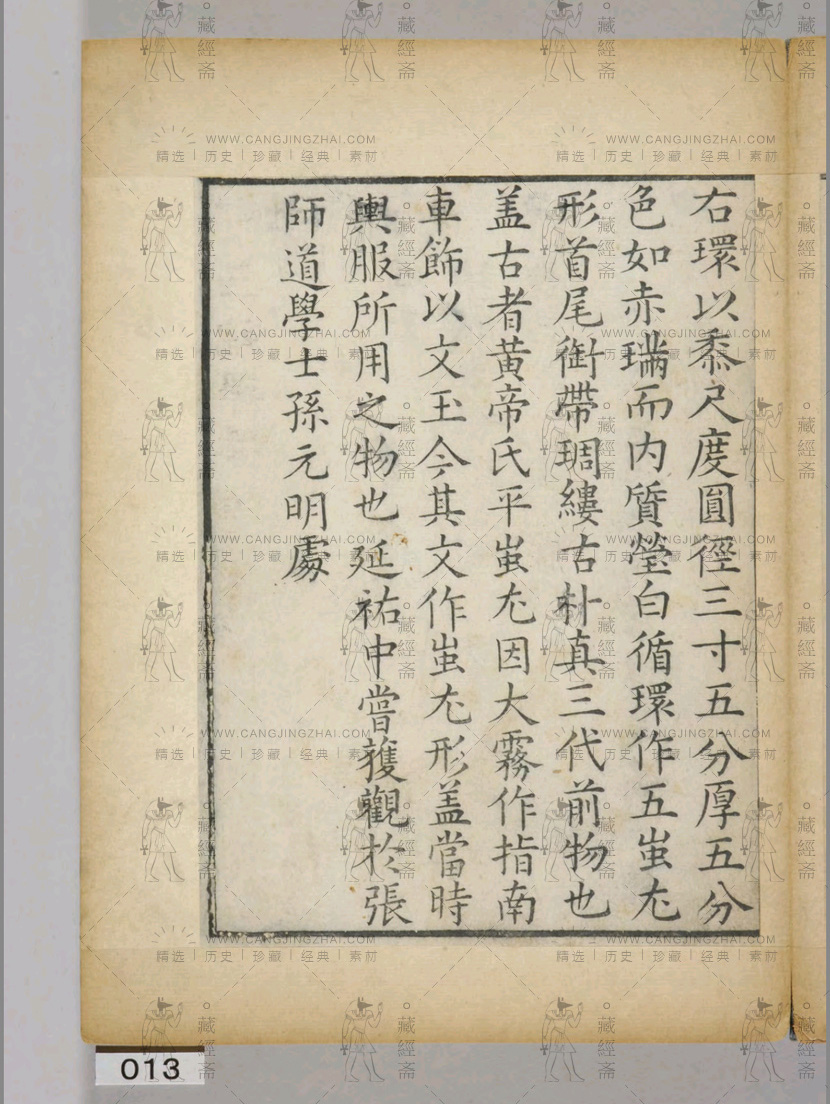 右環以黍尺度圓徑三寸五分厚五分
色如赤璊而内質瑩白循環作五蚩尤
形首尾銜帶琱縷古朴真三代前物也
盖古者黄帝氏平蚩尤因大霧作指南
車飾以文玉今其文作蚩尤形盖當時
輿服所用之物也延祐中嘗獲觀於張
師道學士孫元明處
013
藏經斋
WWW.CANGJINGZHAI.COM
精选 | 历史 | 珍藏 | 经典 | 素材